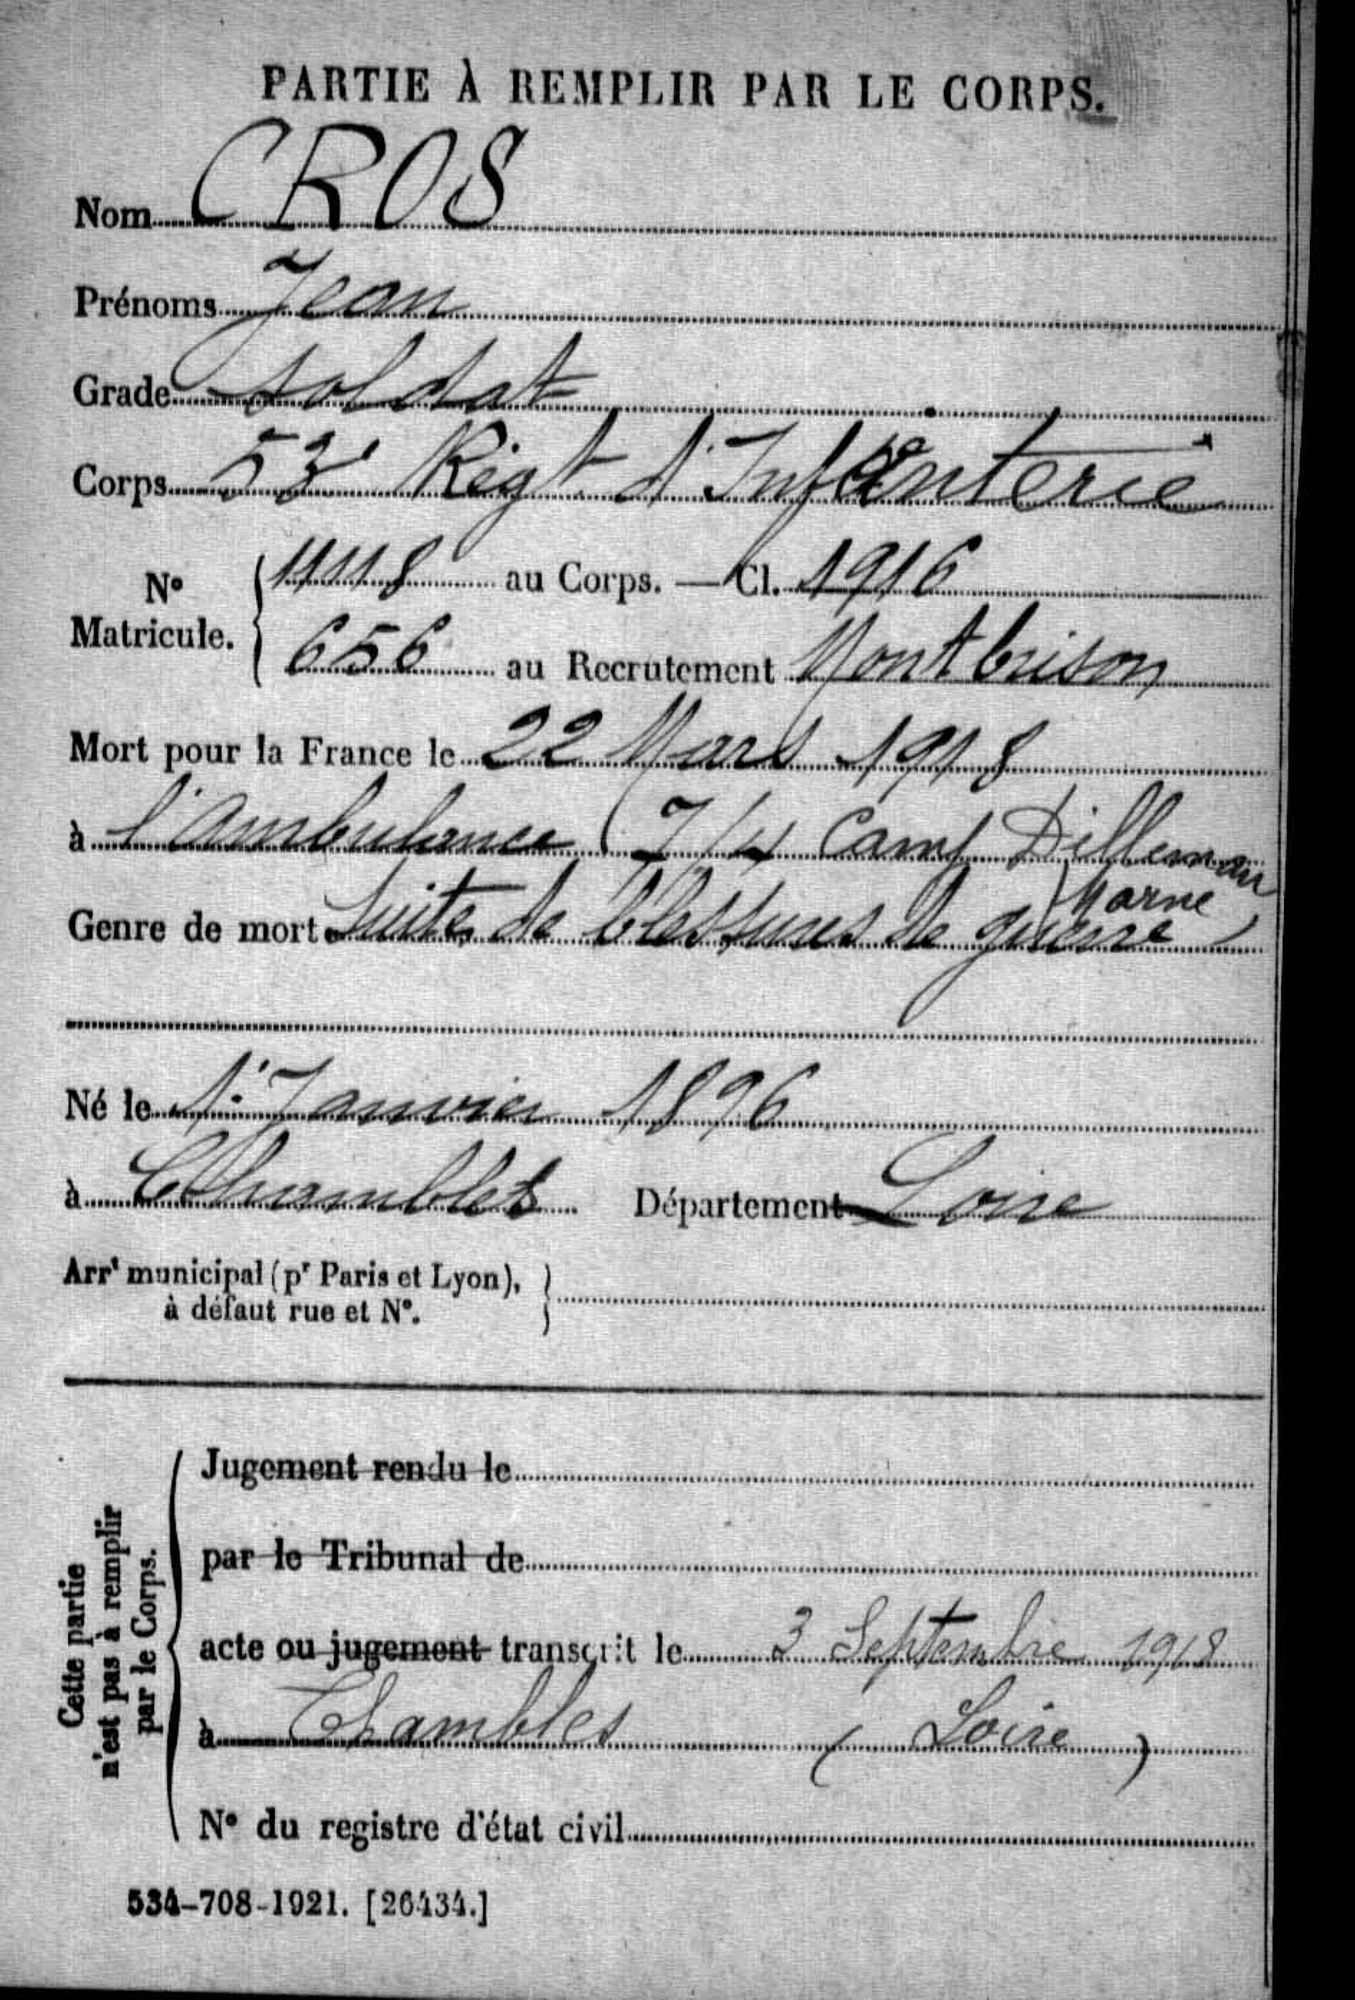 PARTIE À REMPLIR PAR LE CORPS.
Nom CROS
Prénoms Jean
Grade soldat
Corps 53e Régt d'Infanterie
No Matricule. { 11118 au Corps. — Cl. 1916
656 au Recrutement Montbrison
Mort pour la France le 22 Mars 1918
à l'ambulance (7/4 Camp Dilleman
Marne)
Genre de mort Suites de blessures de guerre
Né le 1er Janvier 1896
à Chambles Département Loire
Arrt municipal (pr Paris et Lyon),
à défaut rue et No.
Cette partie
n'est pas à remplir
par le Corps.
Jugement rendu le
par le Tribunal de
acte ou jugement transcrit le 3 Septembre 1918
à Chambles (Loire)
No du registre d'état civil
534-708-1921. [26434.]